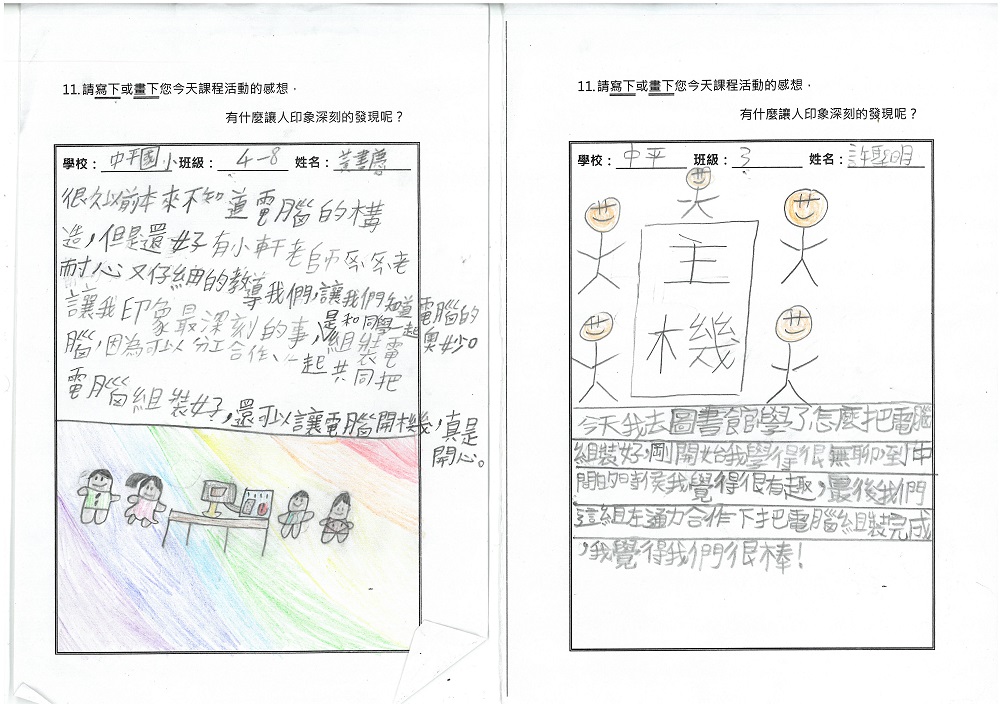 11.請寫下或畫下您今天課程活動的感想，
有什麼讓人印象深刻的發現呢？
學校：中平國小 班級：4-8 姓名：黃書鷹
很久以前本來不知道電腦的構
造，但是還好有小軒老師
耐心又仔細的教導我們，讓我們知道電腦的
奧妙。
讓我印象最深刻的事，是和同學一起組裝電
腦，因為可以分工合作、一起共同把
電腦組裝好，還可以讓電腦開機，真是
開心。
11.請寫下或畫下您今天課程活動的感想，
有什麼讓人印象深刻的發現呢？
學校：中平 班級：3 姓名：許聖明
主
機
今天我去圖書館學了怎麼把電腦
組裝好，剛開始我學得很無聊到中
間的時侯我覺得很有趣，最後我們
這組在通力合作下把電腦組裝完成
，我覺得我們很棒！